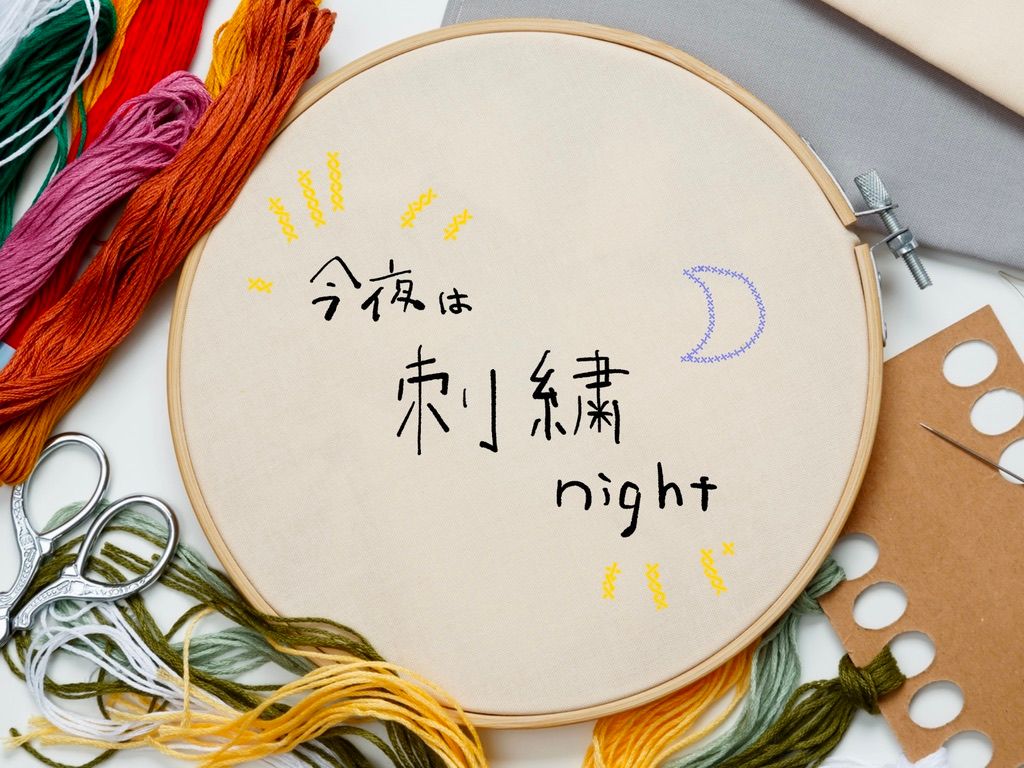 今夜は
刺繍
night